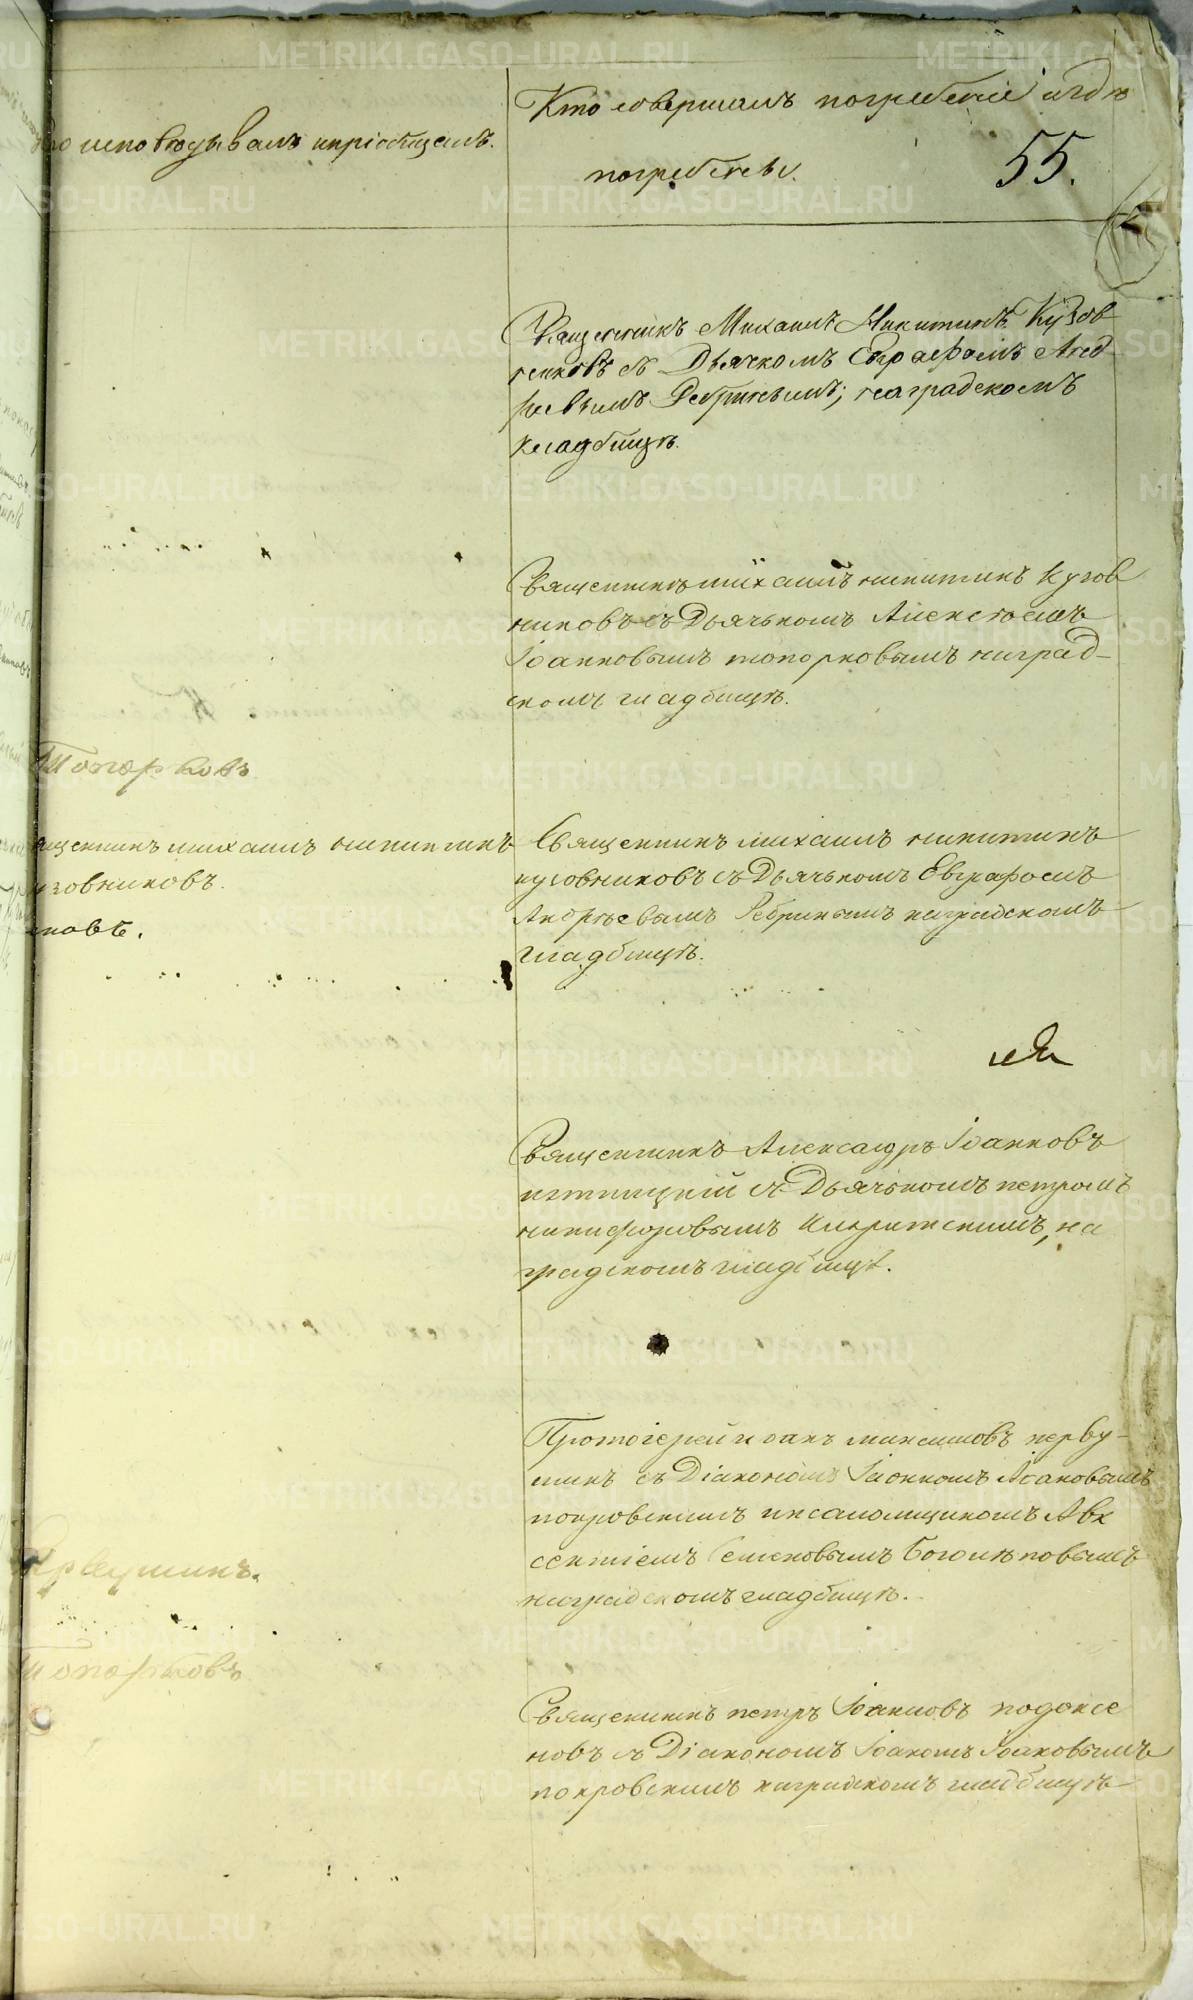 исповѣдывалъ и пріобщалъ.
Кто совершалъ погребеніе и гдѣ
погребены.
55.
Священникъ Михаилъ Никитинъ Кузов
никовъ съ Дьячкомъ Евграфомъ Анд
реевымъ Ребринымъ; на градскомъ
кладбищѣ.
Священникъ михаилъ никитинъ кузов
никовъ съ Дьячькомъ Алексѣемъ
Іоанновымъ топорковымъ на град-
скомъ кладбищѣ.
Топорковъ
михаилъ никитинъ
узовниковъ.
новъ.
Священникъ михаилъ никитинъ
кузовниковъ съ Дьячькомъ Евграфомъ
Андрѣевымъ Ребринымъ на градскомъ
кладбищѣ.
Священникъ Александръ Іоанновъ
съ Дьячькомъ петромъ
никифоровымъ на
градскомъ кладбищѣ.
Протоіерей иоанъ максимовъ перву-
шинъ съ Діакономъ Іоанномъ Іоановымъ
покровскимъ и псаломщикомъ Авк
сентіемъ Семеновымъ Боголѣповымъ
на градскомъ кладбищѣ.
Первушинъ.
Топорковъ
Священникъ петръ Іоанновъ подоксе
новъ съ Діакономъ Іоаномъ Іоановымъ
покровскимъ на градскомъ кладбищѣ
METRIKI.GASO-URAL.RU